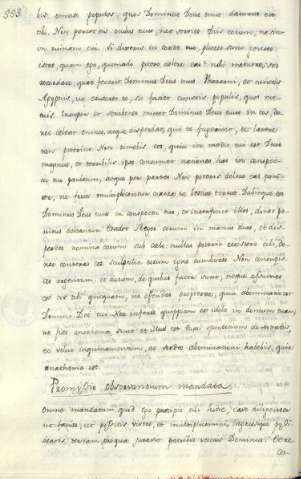 333
bis omnes populos, quos Dominus Deus tuus daturus est
tibi. Non parcet eis oculus tuus, nec servies Diis eorum, ne sint
in ruinam tui. Si dixeris in corde tuo, plures sunt gentes
istæ, quam ego, quomodo potero delere eas? noli metuere, sed
recordare, quæ fecerit Dominus Deus tuus Pharaoni, et cunctis
Ægyptiis,
sic faciet cunctis populis, quos me-
tuis. Insuper et crabrones mittet Dominus Deus tuus in eos, do-
nec deleat omnes, atque disperdat, qui te fugerint, et latere
non potuerint. Non timebis eos, quia in medio tui est Deus
magnus, et terribilis ipse consumet nationes has in conspectu
tuo paulatim, atque per partes. Non poteris delere eas pariter,
ne forte multiplicentur contra te bestiæ terræ. Dabitque eos
Dominus Deus tuus in conspectu tuo, et interficiet illos, donec pe-
nitus deleantur. Tradet Reges eorum in manus tuas, et dis-
perdes nomina eorum sub cœlo: nullus poterit resistere tibi, do-
nec conteras eos. Sculptilia eorum igne combures. Non concupisces
argentum, et aurum, de quibus facta sunt, neque assumes
ex eis tibi quicquam, ne offendas propterea, quia abominatio est
Domini Dei tui. Nec inferes quippiam ex idolo in domum tuam,
ne fias anathema, sicut et illud est. Quasi spurcitiam detestaberis,
et velut inquinamentum, ac sordes abominationi habebis, quia
anathema est.
Promissio observantium mandata
Omne mandatum, quod ego præcipio tibi hodie, cave diligenter
ut facias, ut possitis vivere, et multiplicemini,